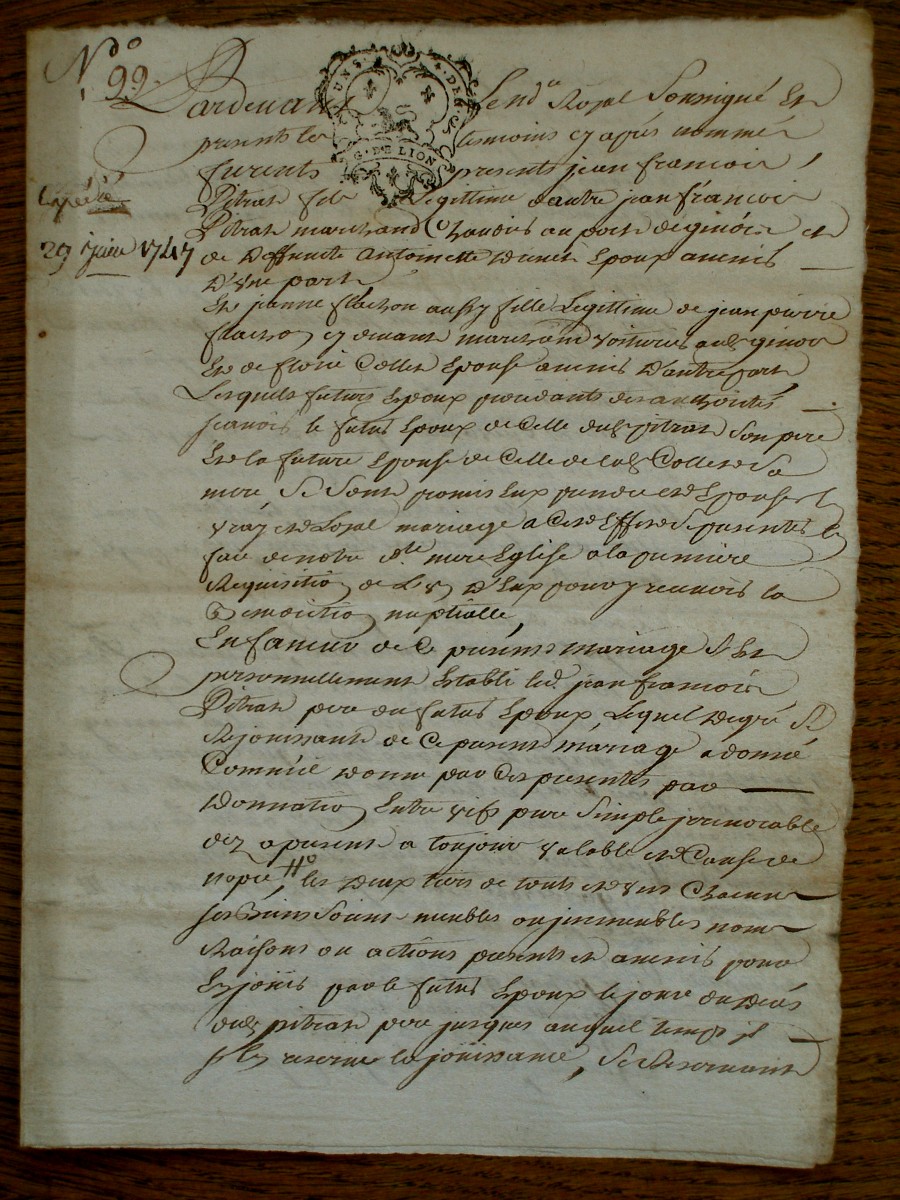 N.do 99.
Expedié
29 juin 1747
UNS. S. DEN.
G. DE LION
Pardevant Le nore Royal Soussigné Et
presents les temoins cy apres nommés
furents presents jean francois
Pitrat fils Legittime dautre jean francois
Pitrat marchand Chanois au port de givors et
de Deffuncte Antoinette Epoux avenir
D'Une part
Et jeanne flachon aussy fille Legittime de jean pierre
flachon cy devant marchand voiturier aud. givors
Et de florie Collet Epouse avenir D'autre part
Lesquels futurs Epoux procedants des authorités
scavoir le futur Epoux de Celle dud. pitrat Son pere
Et la future Epouse de Celle de lad. Collet Sa
mere Se Sont promis Eux prendre et Epouser En
vray et Loyal mariage a Cet Effet Se presenter En
face de notre Ste. mere Eglise a la premiere
Requisition de L'un D'Eux pour y recevoir la
Benediction nuptialle
En faveur de Ce present mariage S'Est
personnellement Establi led. jean francois
Pitrat pere du futur Epoux Lequel de gré Se
Rejouissant de Ce present mariage a donné
Comme il donne par Ces presentes par
Donnation Entre vifs pure Simple irrevocable
dez a present a toujours valable et Cause de
nopce, les Deux tiers de touts et Uns Chacuns
ses Biens Soient meubles ou immeubles noms
Raisons ou actions presents et avenir pour
En jouir par le futur Epoux le jour du Deces
dud. pitrat pere jusques auquel temps il
s'En reserve la jouissance, Se Reservant